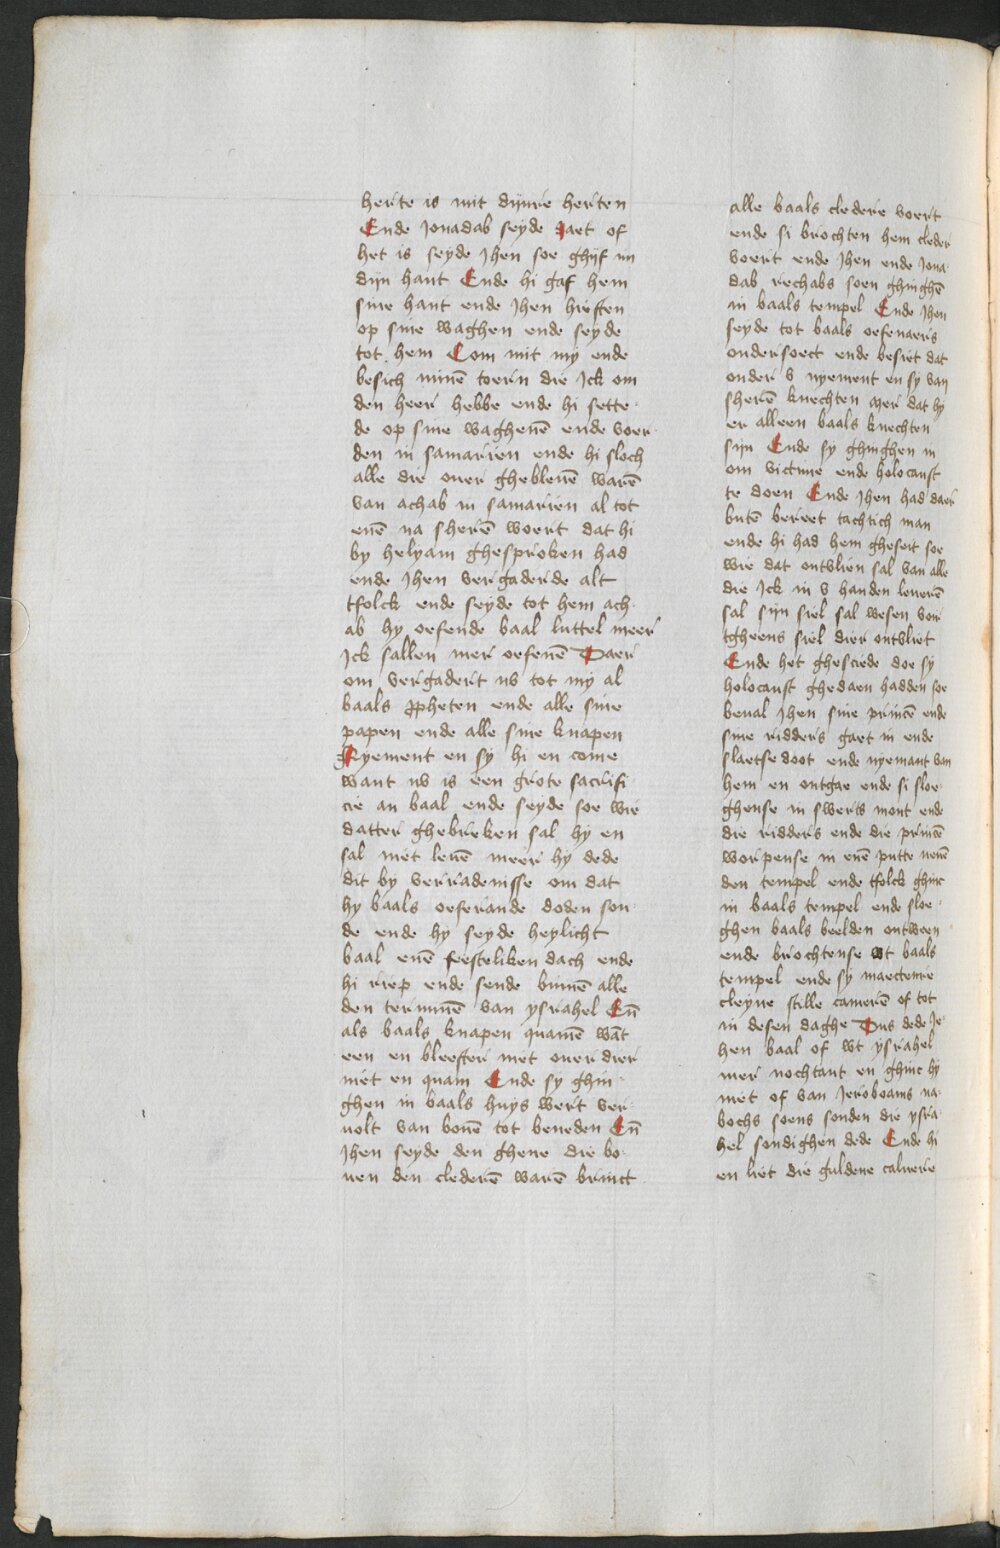 herte is mit dijnre herten
Ende Jonadab seyde Jaet of
het is seyde Jheu soe ghijf mi
dijn hant Ende hi gaf hem
sine hant ende Jheu hieften
op sine waghen ende seyde
tot hem Com mit mÿ ende
besich minē toern die Ick om
den heer hebbe ende hi sette
de op sine waghenē ende voer
den in samarien ende hi sloch
alle die ouer ghebleuē warē
van achab in samarien al tot
enē na sherē woert dat hi
by helyam ghesproken had
ende Jheu vergaderde alt
tfolck ende seyde tot hem ach-
ab hy oefende baal luttel meer
Ick sallen mer oefenē Daer
om vergadert uv tot mÿ al
baals ꝓpheten ende alle sine
papen ende alle sine knapen
Nyement en sy hi en come
want nv is een grote sacrifi
cie an baal ende seyde soe wie
datter ghebreken sal hy en
sal niet leuē meer hy dede
dit by verradenisse om dat
hy baals oefenande doden sou-
de ende hy seyde heylicht
baal enē feesteliken dach ende
hi riep ende sende binnē alle
den terminē van ysrahel Eñ
als baals knapen quamē wāt
een en bleefter niet ouer dier
niet en quam Ende sy ghin-
ghen in baals huys wert ver-
uolt van bouē tot beneden Eñ
Jheu seyde den ghene die bo-
uen den clederē warē brinct
alle baals cledere voert
ende si brochten hem cleder
voert ende Jheu ende Jona-
dab rechabs soen ghinghē
in baals tempel Ende Jheu
seyde tot baals oefenaers
ondersoect ende besiet dat
onder v nyement en sy van
sherē knechten mer dat hy
er alleen baals knechten
sijn Ende sy ghinghen in
om victime ende holocaust
te doen Ende Jheu had daer
butē bereet tachtich man
ende hi had hem gheseit soe
wie dat ontvlien sal van alle
die Ick in v handen leuerē
sal sijn siel sal wesen voir
tgheens siel dier ontvliet
Ende het ghesciede doe sy
holocaust ghedaen hadden soe
beual Jheu sine princē ende
sine ridders gaet in ende
slaetse doot ende nyemant van
hem en ontgae ende si sloe-
ghense in swerts mont ende
die ridders ende die princē
worpense in enē putte neuē
den tempel ende tfolck ghinc
in baals tempel ende sloe-
ghen baals beelden ontween
ende brochtense wt baals
tempel ende sy maectenre
cleyne stille camerē of tot
in desen daghe Dus dede Je-
heu baal of wt ysrahel
mer nochtant en ghinc hy
niet of van Jeroboams na-
bochs soens sonden die ysra
hel sondighen dede Ende hi
en liet die guldene caluere